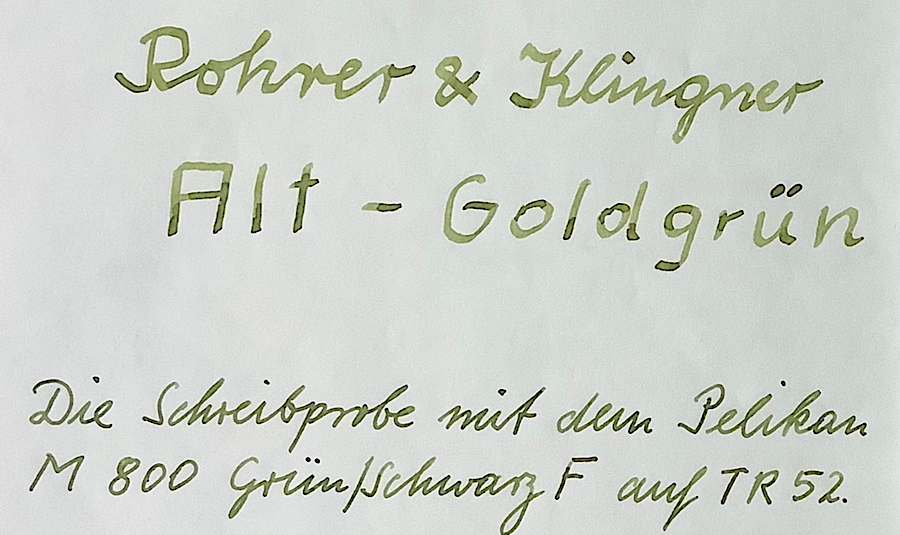 Rohrer & Klingner
Alt - Goldgrün
Die Schreibprobe mit dem Pelikan
M 800 Grün/Schwarz F auf TR 52.